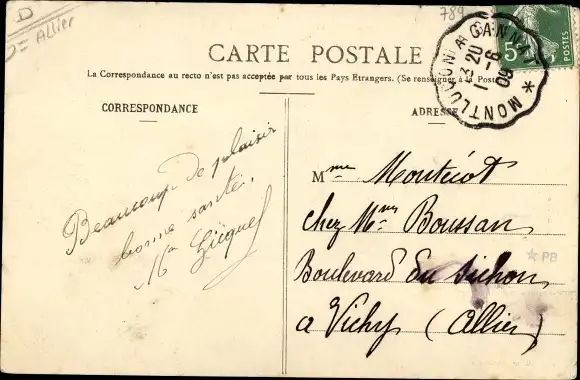 D = Allier
789
CARTE POSTALE
La Correspondance au recto n'est pas acceptée par tous les Pays Etrangers. (Se renseigner à la Poste)
CORRESPONDANCE
ADRESSE
5c
POSTES
MONTLUÇON A GANNAT *
13 20
6
09
Beaucoup de plaisir
bonne santé,
Gicquel
Mme Montécot
chez Mme Boussan
Boulevard du Sichon,
a Vichy (Allier)
PB